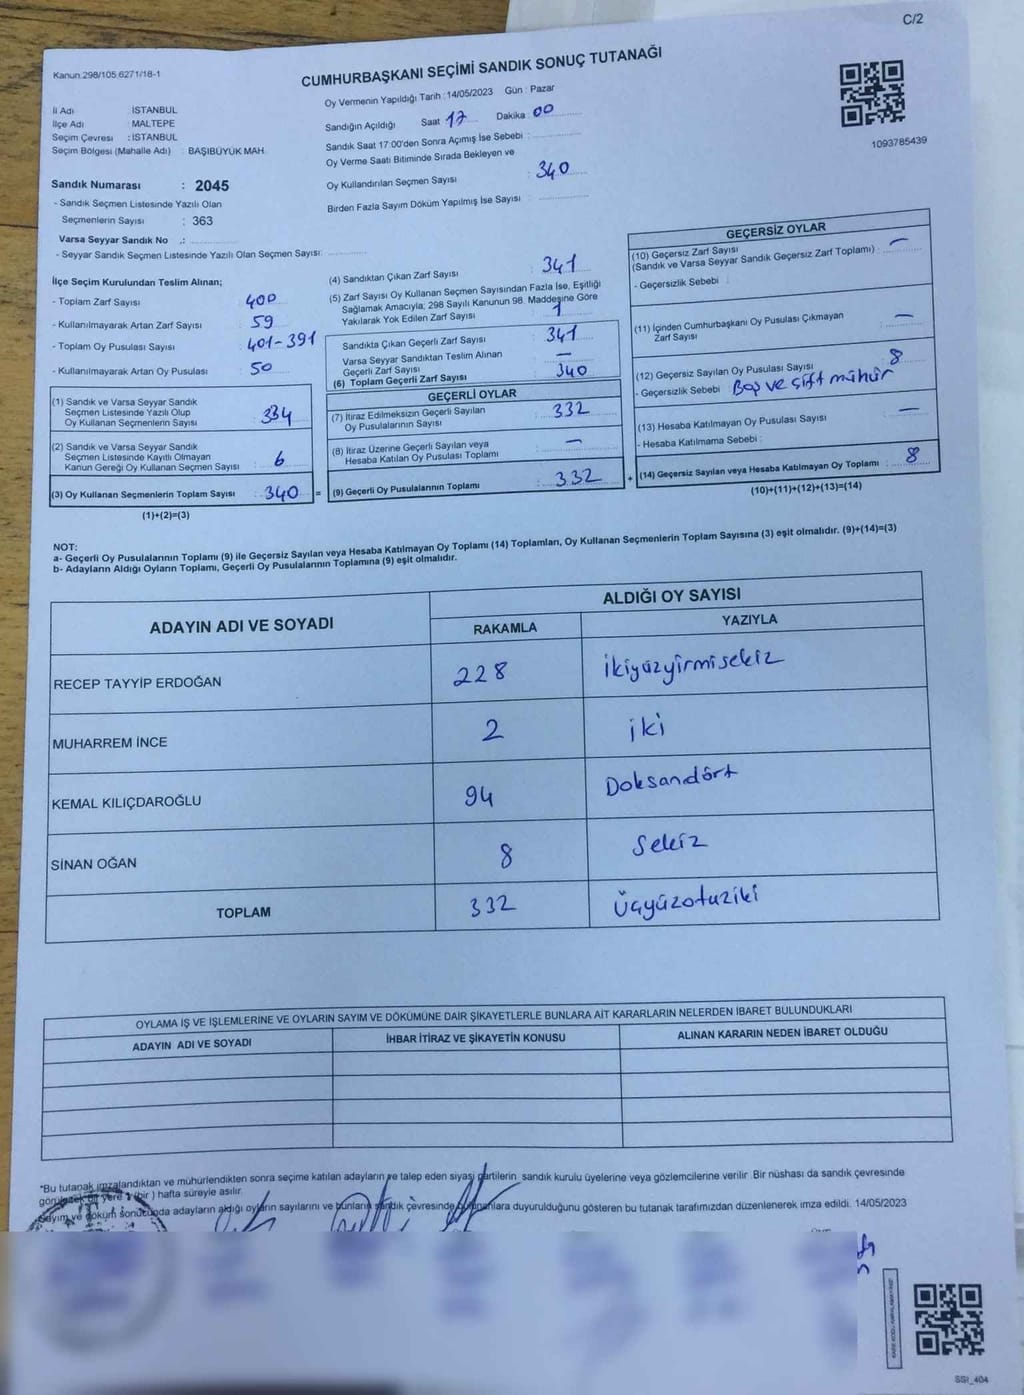 C/2
Kanun:298/105.6271/18-1
CUMHURBAŞKANI SEÇİMİ SANDIK SONUÇ TUTANAĞI
1093785439
İl Adı İSTANBUL
İlçe Adı : MALTEPE
Seçim Çevresi : İSTANBUL
Seçim Bölgesi (Mahalle Adı) : BAŞIBÜYÜK MAH.
Sandık Numarası : 2045
- Sandık Seçmen Listesinde Yazılı Olan
Seçmenlerin Sayısı : 363
Varsa Seyyar Sandık No :
- Seyyar Sandık Seçmen Listesinde Yazılı Olan Seçmen Sayısı:
Oy Vermenin Yapıldığı Tarih : 14/05/2023 Gün : Pazar
Sandığın Açıldığı Saat 17 Dakika : 00
Sandık Saat 17:00'den Sonra Açımış İse Sebebi :
Oy Verme Saati Bitiminde Sırada Bekleyen ve
Oy Kullandırılan Seçmen Sayısı : 340
Birden Fazla Sayım Döküm Yapılmış İse Sayısı :
İlçe Seçim Kurulundan Teslim Alınan;
- Toplam Zarf Sayısı : 400
- Kullanılmayarak Artan Zarf Sayısı : 59
- Toplam Oy Pusulası Sayısı : 401-391
- Kullanılmayarak Artan Oy Pusulası : 50
(1) Sandık ve Varsa Seyyar Sandık
Seçmen Listesinde Yazılı Olup
Oy Kullanan Seçmenlerin Sayısı : 334
(2) Sandık ve Varsa Seyyar Sandık
Seçmen Listesinde Kayıtlı Olmayan
Kanun Gereği Oy Kullanan Seçmen Sayısı : 6
(3) Oy Kullanan Seçmenlerin Toplam Sayısı : 340 =
(1)+(2)=(3)
(4) Sandıktan Çıkan Zarf Sayısı : 341
(5) Zarf Sayısı Oy Kullanan Seçmen Sayısından Fazla İse, Eşitliği
Sağlamak Amacıyla; 298 Sayılı Kanunun 98. Maddesine Göre
Yakılarak Yok Edilen Zarf Sayısı : 1
Sandıkta Çıkan Geçerli Zarf Sayısı : 341
Varsa Seyyar Sandıktan Teslim Alınan
Geçerli Zarf Sayısı : —
(6) Toplam Geçerli Zarf Sayısı : 340
GEÇERLİ OYLAR
(7) İtiraz Edilmeksizin Geçerli Sayılan
Oy Pusulalarının Sayısı : 332
(8) İtiraz Üzerine Geçerli Sayılan veya
Hesaba Katılan Oy Pusulası Toplamı : —
(9) Geçerli Oy Pusulalarının Toplamı : 332 +
GEÇERSİZ OYLAR
(10) Geçersiz Zarf Sayısı
(Sandık ve Varsa Seyyar Sandık Geçersiz Zarf Toplamı) : —
- Geçersizlik Sebebi :
(11) İçinden Cumhurbaşkanı Oy Pusulası Çıkmayan
Zarf Sayısı : —
(12) Geçersiz Sayılan Oy Pusulası Sayısı : 8
- Geçersizlik Sebebi : Boş ve çift mühür
(13) Hesaba Katılmayan Oy Pusulası Sayısı : —
- Hesaba Katılmama Sebebi :
(14) Geçersiz Sayılan veya Hesaba Katılmayan Oy Toplamı : 8
(10)+(11)+(12)+(13)=(14)
NOT:
a- Geçerli Oy Pusulalarının Toplamı (9) ile Geçersiz Sayılan veya Hesaba Katılmayan Oy Toplamı (14) Toplamları, Oy Kullanan Seçmenlerin Toplam Sayısına (3) eşit olmalıdır. (9)+(14)=(3)
b- Adayların Aldığı Oyların Toplamı, Geçerli Oy Pusulalarının Toplamına (9) eşit olmalıdır.
ADAYIN ADI VE SOYADI ALDIĞI OY SAYISI
RAKAMLA YAZIYLA
RECEP TAYYİP ERDOĞAN 228 ikiyüzyirmisekiz
MUHARREM İNCE 2 iki
KEMAL KILIÇDAROĞLU 94 Doksandört
SİNAN OĞAN 8 Sekiz
TOPLAM 332 Üçyüzotuziki
OYLAMA İŞ VE İŞLEMLERİNE VE OYLARIN SAYIM VE DÖKÜMÜNE DAİR ŞİKAYETLERLE BUNLARA AİT KARARLARIN NELERDEN İBARET BULUNDUKLARI
ADAYIN ADI VE SOYADI İHBAR İTİRAZ VE ŞİKAYETİN KONUSU ALINAN KARARIN NEDEN İBARET OLDUĞU
"Bu tutanak imzalandıktan ve mühürlendikten sonra seçime katılan adayların ve talep eden siyasi partilerin sandık kurulu üyelerine veya gözlemcilerine verilir. Bir nüshası da sandık çevresinde
görülecek bir yere 1 (bir) hafta süreyle asılır.
Sayım ve döküm sonucunda adayların aldığı oyların sayılarını ve bunların sandık çevresinde bulunanlara duyurulduğunu gösteren bu tutanak tarafımızdan düzenlenerek imza edildi. 14/05/2023
SSI_404